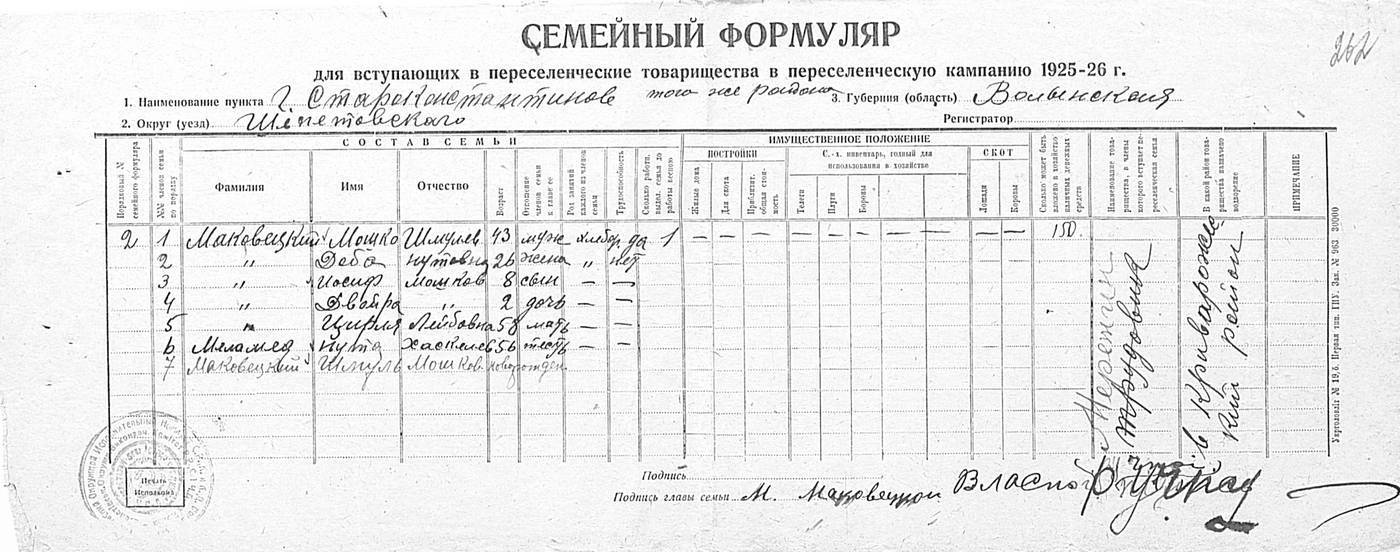 СЕМЕЙНЫЙ ФОРМУЛЯР
262
для вступающих в переселенческие товарищества в переселенческую кампанию 1925-26 г.
1. Наименование пункта г. Староконстантинове того же района 3. Губерния (область) Волынская
2. Округ (уезд) Шепетовского Регистратор
СОСТАВ СЕМЬИ ИМУЩЕСТВЕННОЕ ПОЛОЖЕНИЕ
Порядковый № семейного формуляра
№№ членов семьи по порядку
Фамилия
Имя
Отчество
Возраст
Отношение членов семьи к главе ее
Род занятий каждого из членов семьи
Трудоспособность
Сколько работн. выдел. семья до работы весною
ПОСТРОЙКИ
Жилые дома
Для скота
Приблизит. общая стоимость
С.-х. инвентарь, годный для использования в хозяйстве
Телеги
Плуги
Бороны
СКОТ
Лошади
Коровы
Сколько может быть вложено в хозяйство наличных денежных средств
Наименование товарищества, в члены которого вступает переселенческая семья
В какой район товарищества назначено водворение
ПРИМЕЧАНИЕ
2 1 Маковецкий Мошко Шмулев 43 муж хлебор. да 1 — — — — — — — — — — — 150.
2 " Доба Нутовна 26 жена " нет
3 " Иосиф Мошков 8 сын — —
4 " Двойра " 2 дочь — —
5 " Цирля Лейбовна 58 мать — —
6 Меламед Нута Хаскелев 56 тесть — —
7 Маковецкий Шмуль Мошков. новорожден
трудовик
в Криварожский район
Укрголовліт № 19,6. Первая тип. ГПУ. Зак. № 963 30000
Печать Исполкома
Подпись
Подпись главы семьи М. Маковецкой